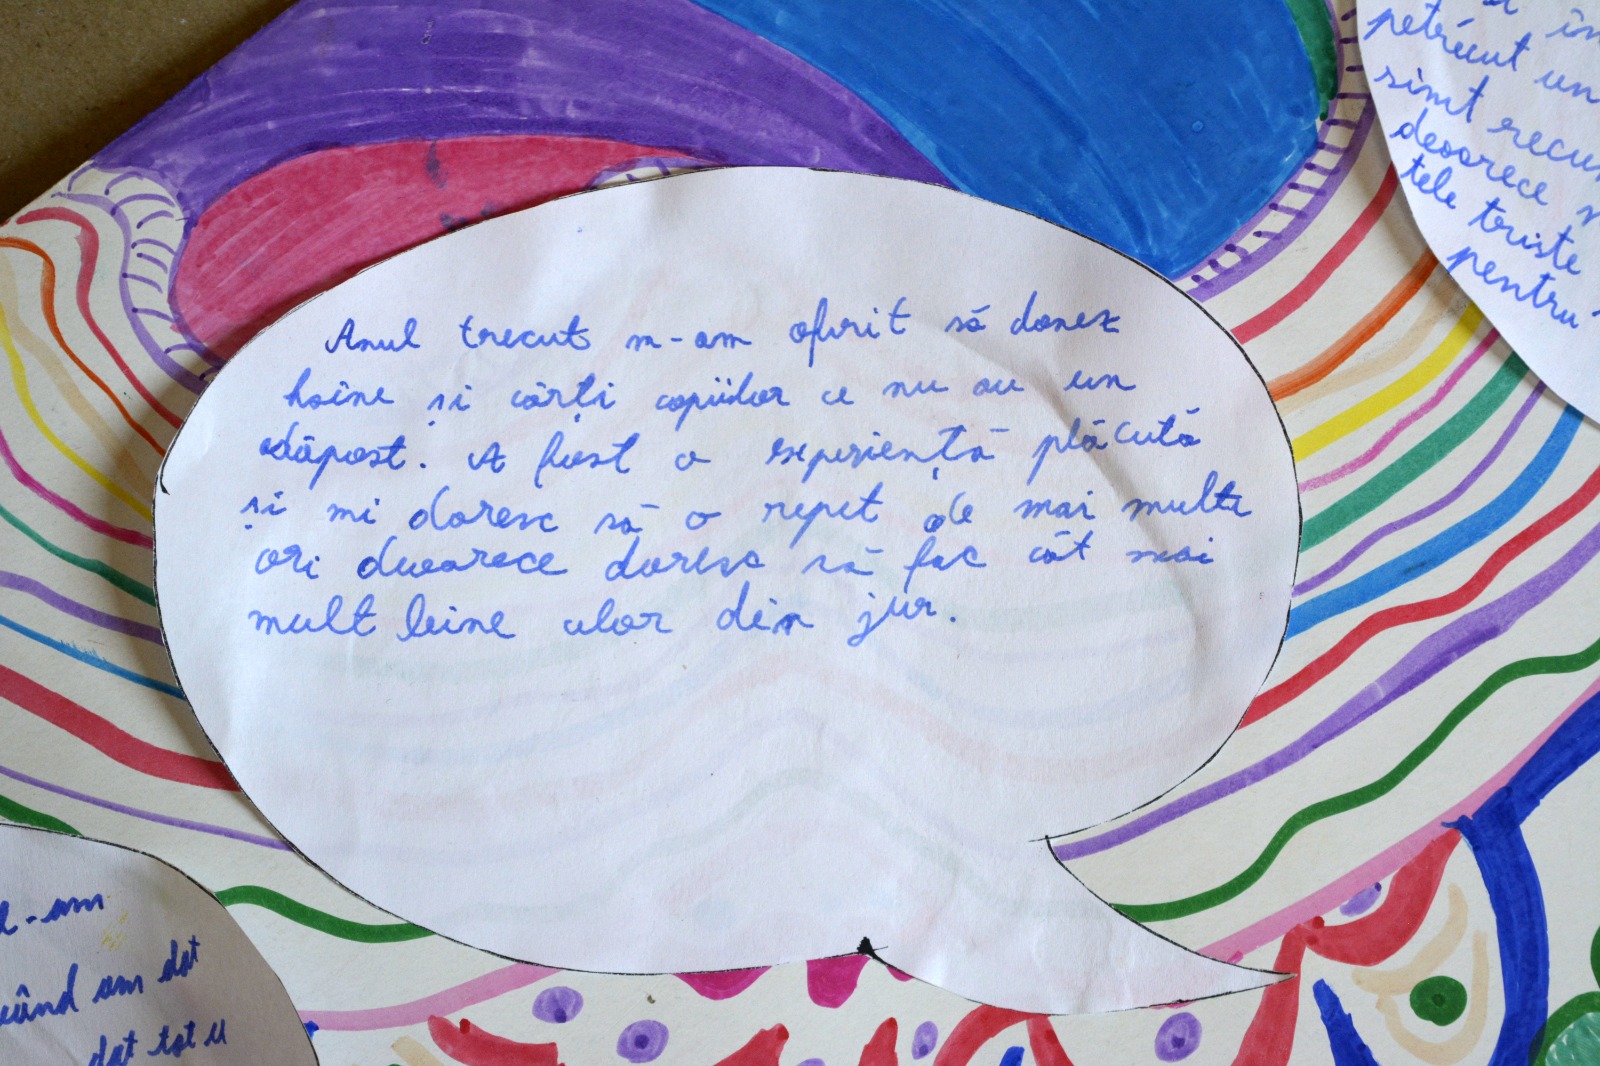 Anul trecut m-am oferit să donez
haine și cărți copiilor ce nu au un
adăpost. A fost o experiență plăcută
și mi doresc să o repet de mai multe
ori deoarece doresc să fac cât mai
mult bine celor din jur.
petrecut un
simt recu
deoarece
tele triste
pentru
l-am
când am dat
dat tot u